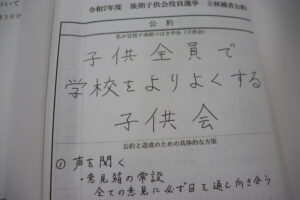 令和7年度 後期子供会役員選挙 立候補者公約
公約
子供全員で
学校をよりよくする
子供会
公約と達成のための具体的な方策
① 声を聞く
・意見箱の常設
全ての意見に必ず目を通し向き合う